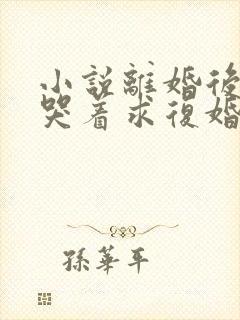 小說離婚後
哭着求復婚
孫華平